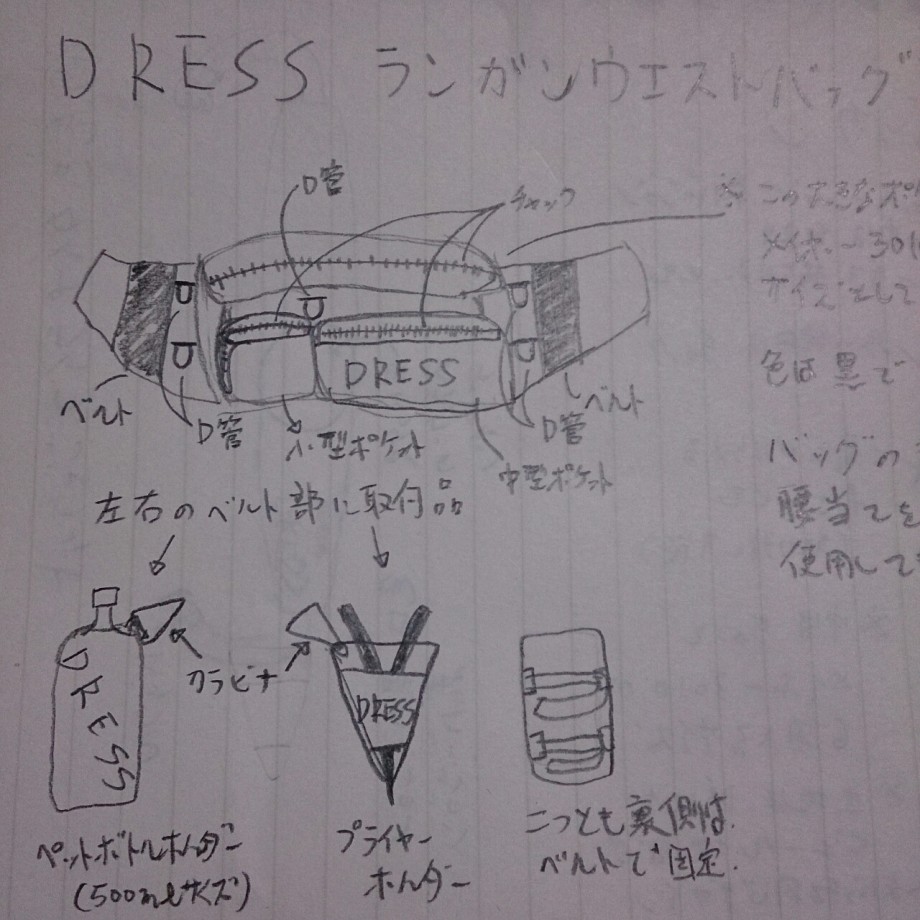 DRESS ランガンウエストバッグ
D管
チャック
※この大きなポ
メイホー
サイズとして
DRESS
色は黒で
ベルト
D管
小型ポケット
中型ポケット
D管
ベルト
バッグの
腰当てを
使用して
左右のベルト部に取付品
カラビナ
DRESS
DRESS
ペットボトルホルダー
(500mlサイズ)
プライヤー
ホルダー
二つとも裏側は
ベルトで固定.